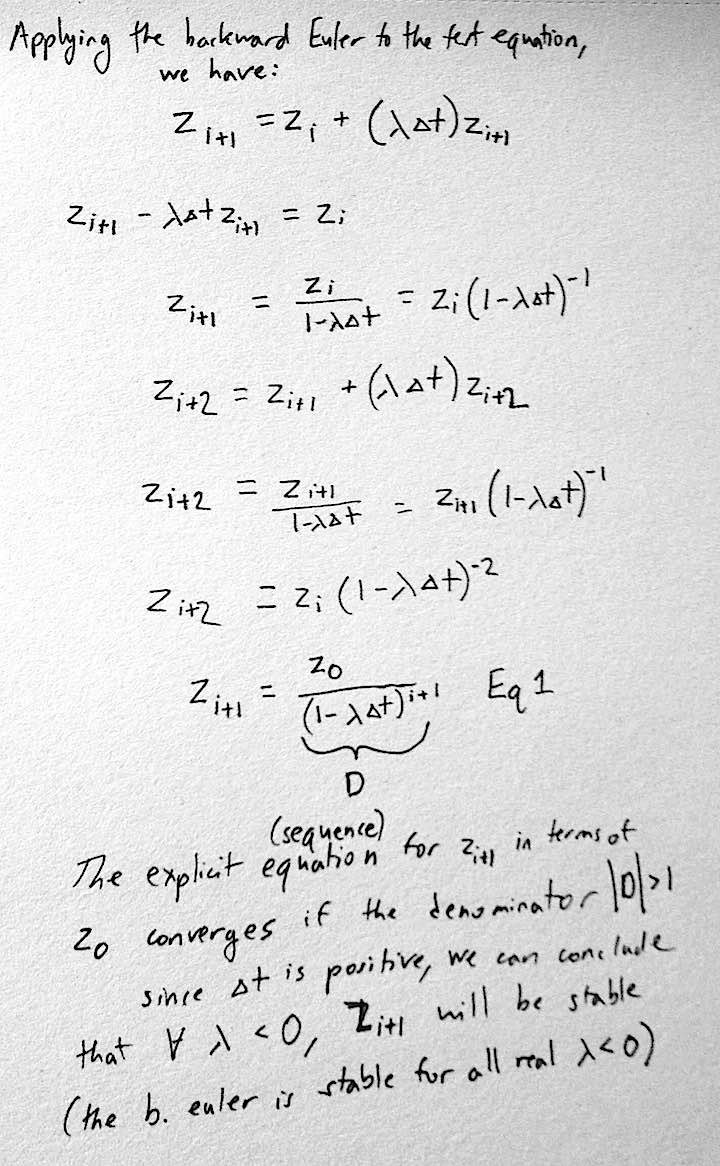 Applying the backward Euler to the test equation,
we have:
z_{i+1} = z_i + (λΔt) z_{i+1}
z_{i+1} - λΔt z_{i+1} = z_i
z_{i+1} = z_i / (1-λΔt) = z_i (1-λΔt)^{-1}
z_{i+2} = z_{i+1} + (λΔt) z_{i+2}
z_{i+2} = z_{i+1} / (1-λΔt) = z_{i+1} (1-λΔt)^{-1}
z_{i+2} = z_i (1-λΔt)^{-2}
z_{i+1} = z_0 / (1-λΔt)^{i+1} Eq 1
D
(sequence)
The explicit equation for z_{i+1} in terms of
z_0 converges if the denominator |D|>1
since Δt is positive, we can conclude
that ∀ λ < 0, z_{i+1} will be stable
(the b. euler is stable for all real λ<0)